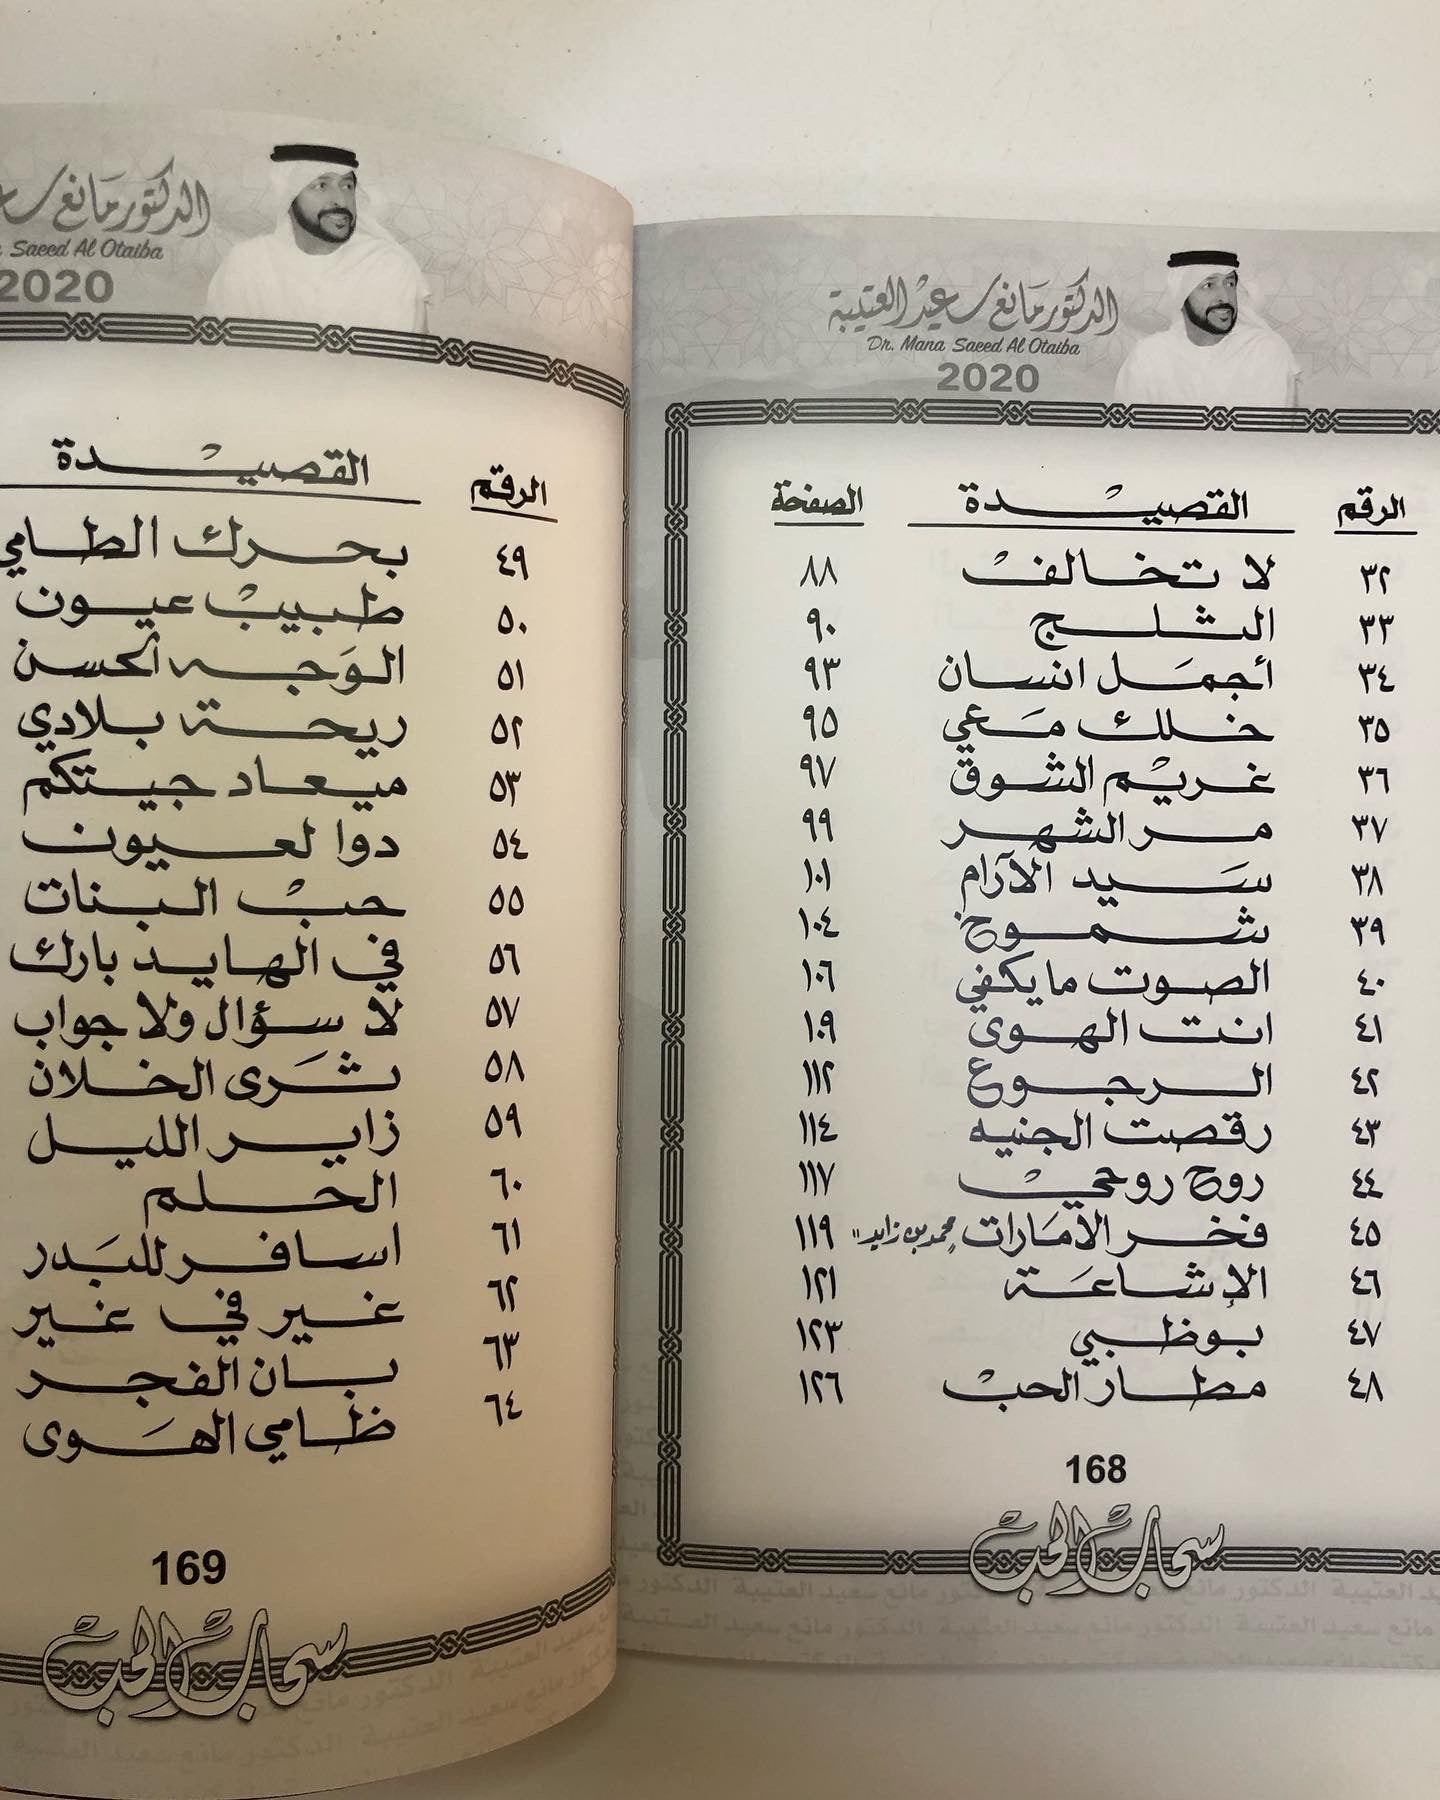 الدكتور مانع سعيد العتيبة
Dr. Mana Saeed Al Otaiba
2020
الرقم القصيدة الصفحة
٣٢ لا تخالف ٨٨
٣٣ الثلج ٩٠
٣٤ أجمل انسان ٩٣
٣٥ خلك معي ٩٥
٣٦ غريم الشوق ٩٧
٣٧ مر الشهر ٩٩
٣٨ سيد الآرام ١٠١
٣٩ شموخ ١٠٤
٤٠ الصوت مايكفي ١٠٦
٤١ انت الهوى ١٠٩
٤٢ الرجوع ١١٢
٤٣ رقصت الجنيه ١١٤
٤٤ روح روحي ١١٧
٤٥ فخر الامارات "محمد بن زايد" ١١٩
٤٦ الإشاعة ١٢١
٤٧ بوظبي ١٢٣
٤٨ مطار الحب ١٢٦
168
سحاب الحب
الدكتور مانع
Saeed Al Otaiba
2020
الرقم القصيدة
٤٩ بحرك الطامي
٥٠ طبيب عيون
٥١ الوجه الحسن
٥٢ ريحة بلادي
٥٣ ميعاد جيتكم
٥٤ دوا لعيون
٥٥ حب البنات
٥٦ في الهايد بارك
٥٧ لا سؤال ولا جواب
٥٨ ثرى الخلان
٥٩ زاير الليل
٦٠ الحلم
٦١ اسافر للبدر
٦٢ غير في غير
٦٣ بان الفجر
٦٤ ظامي الهوى
169
سحاب الحب